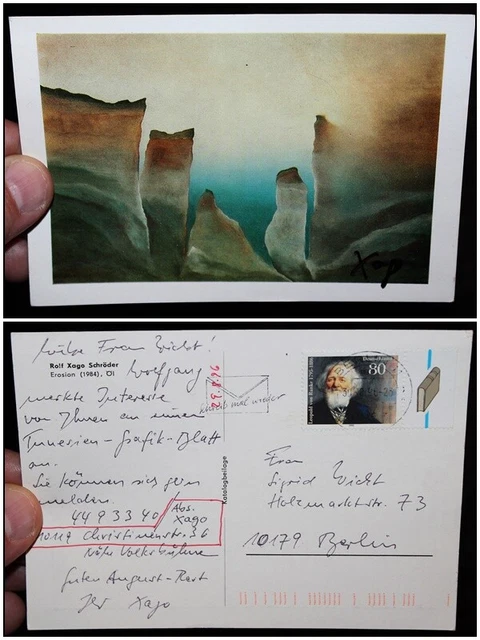 Xago
Frau
Rolf Xago Schröder
Erosion (1984), Öl
Wolfgang
merkte Interesse
von Ihnen an einem
Grafik-Blatt
an.
Sie können sich gern
melden.
44 9 33 40
Abs.
Xago
10119 Christinenstr. 36
Nähe Volksbühne
Guten August-Rest
Ihr Xago
Katalogbeilage
schreib mal wieder
Leopold von Ranke 1795-1886
Deutschland
80
Frau
Sigrid Wicht
Holzmarktstr. 73
10179 Berlin